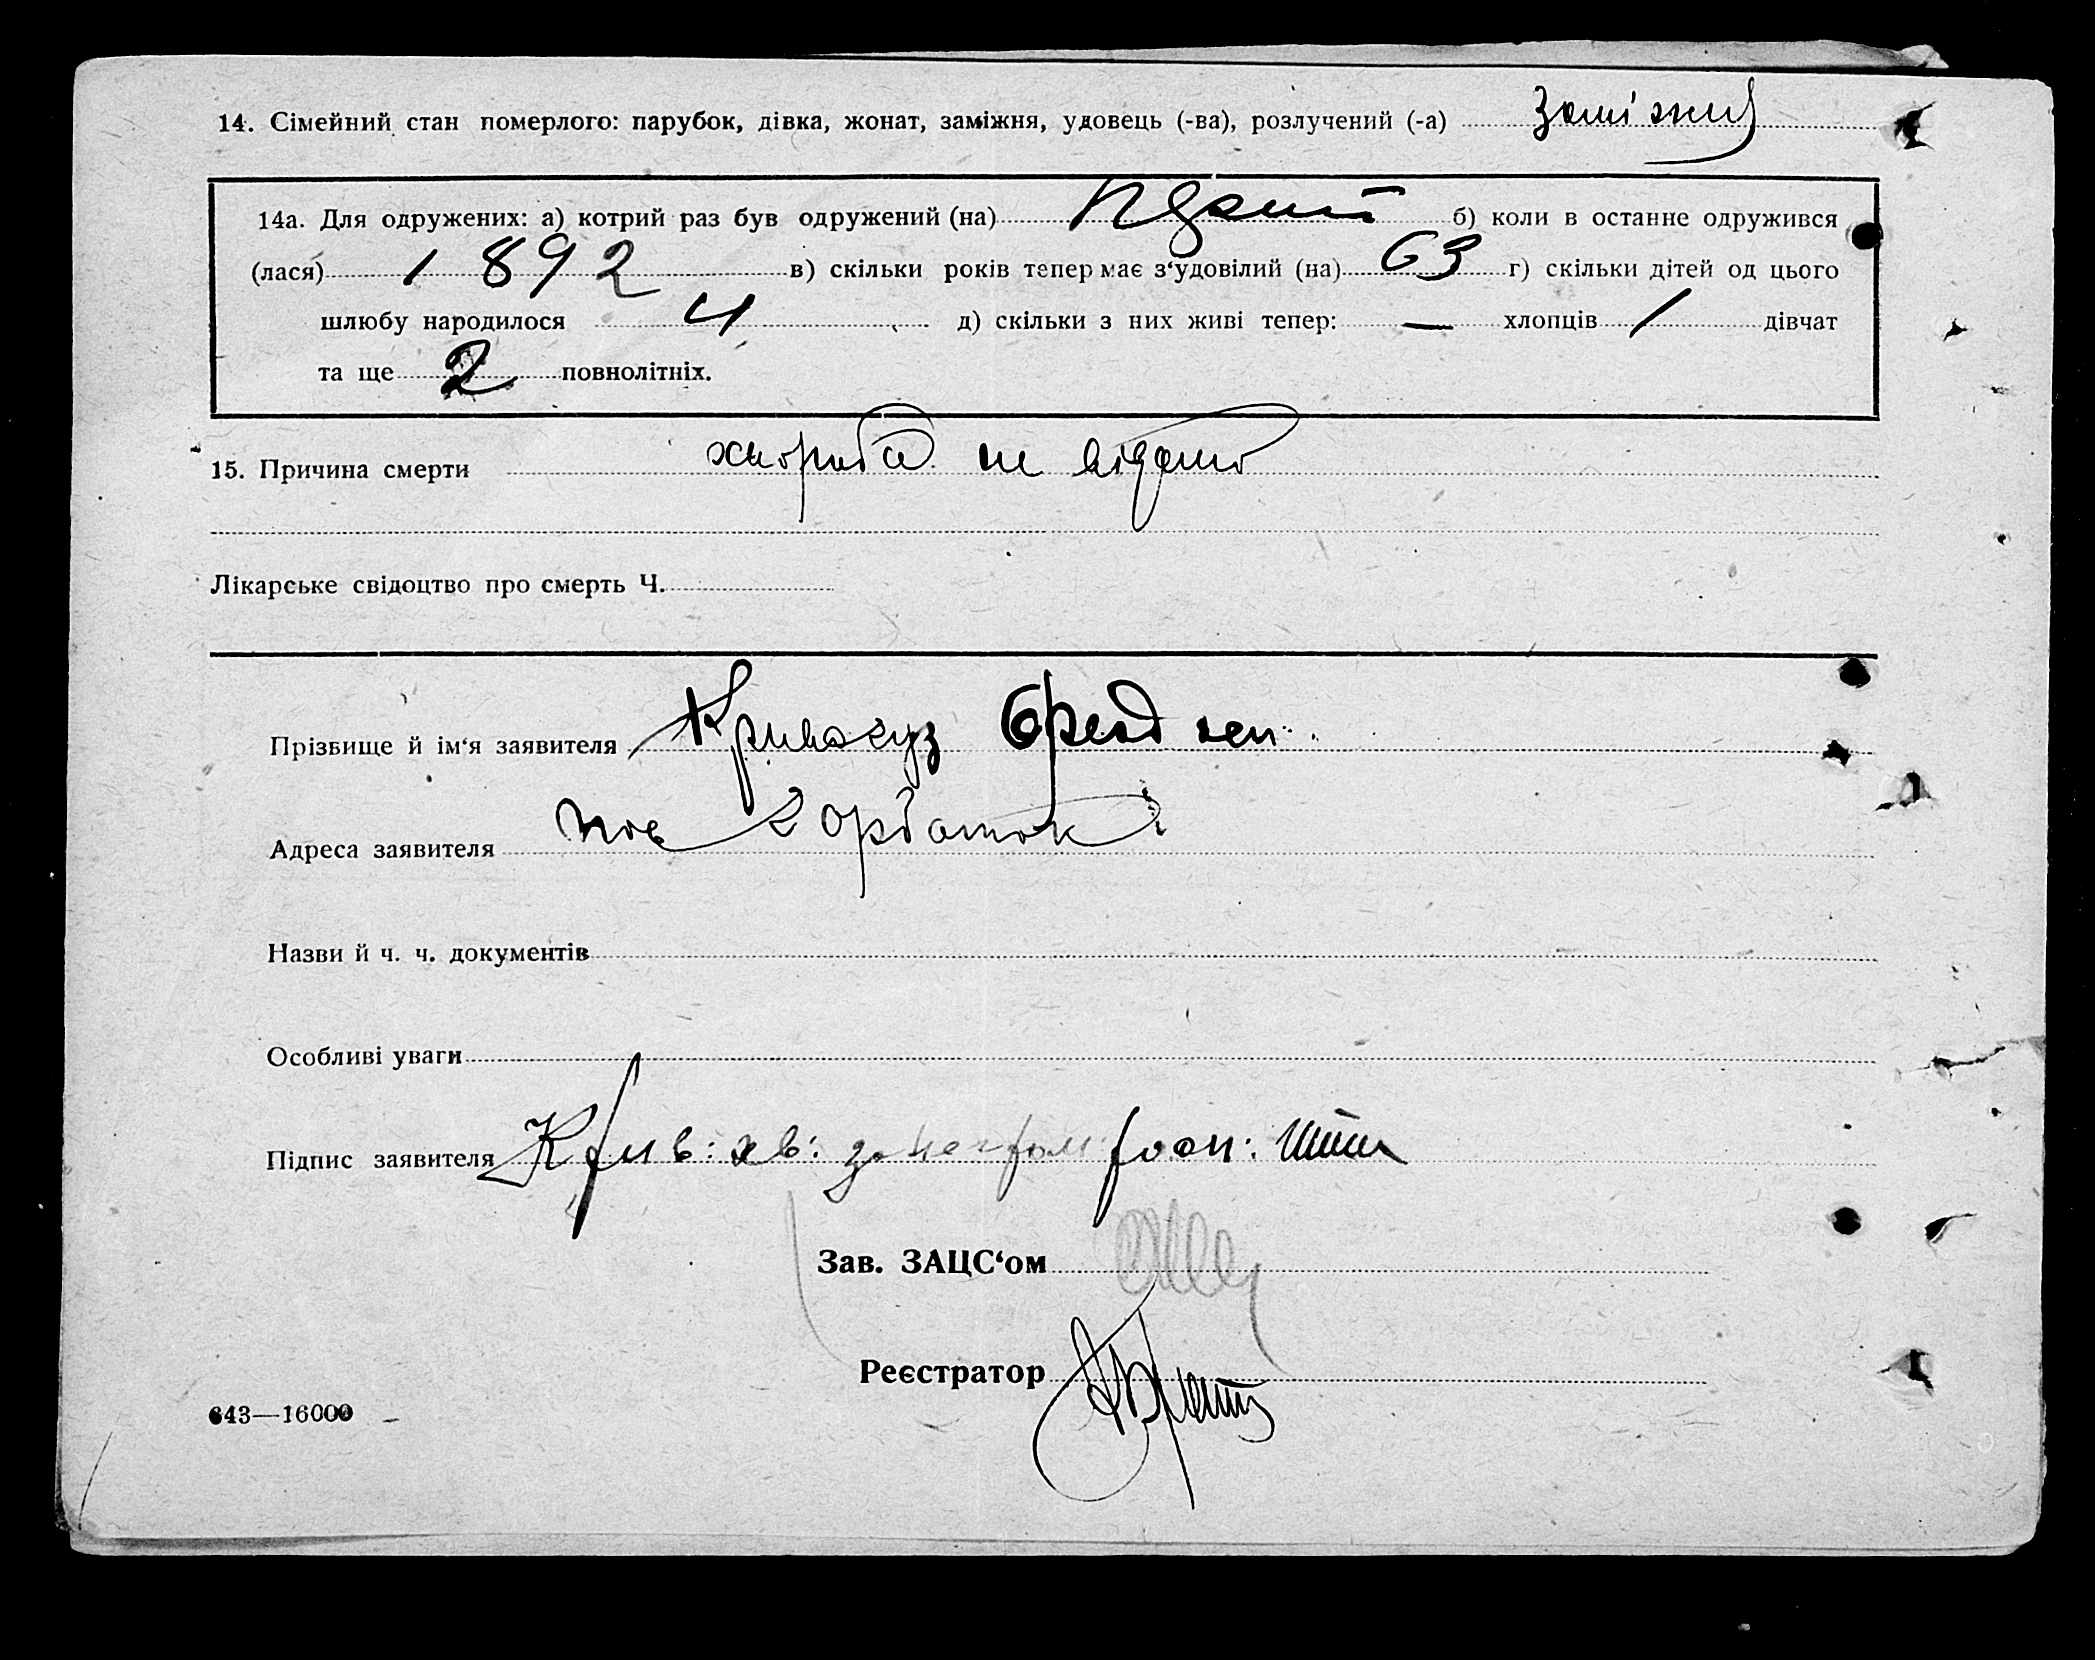 14. Сімейний стан померлого: парубок, дівка, жонат, заміжня, удовець (-ва), розлучений (-а) заміжня
14а. Для одружених: а) котрий раз був одружений (на) б) коли в останне одружився
(лася) 1892 в) скільки років тепер має з‘удовілий (на) 63 г) скільки дітей од цього
шлюбу народилося 4 д) скільки з них живі тепер: — хлопців 1 дівчат
та ще 2 повнолітніх.
15. Причина смерти хвороба не відомо
Лікарське свідоцтво про смерть Ч.
Прізвище й ім‘я заявителя
Адреса заявителя
Назви й ч. ч. документів
Особливі уваги
Підпис заявителя
Зав. ЗАЦС‘ом
Реєстратор
643—16000